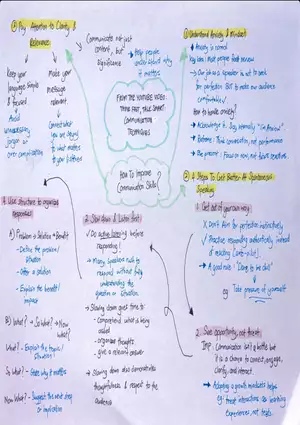 FROM THE YOUTUBE VIDEO
"THINK FAST, TALK SMART:
COMMUNICATION
TECHNIQUES"
How To Improve
Communication Skills?
① Understand Anxiety & Mindset
* Anxiety is normal
Key Idea: Most people fear
↳ Our job as a speaker is not to seek
for perfection BUT to make our audience
comfortable!
How to handle anxiety?
* Acknowledge it - Say internally "I'm Anxious"
* Reframe: Think conversation, not performance
* Be present: Focus on now, not future reactions.
② 4 Steps To Get Better At Spontaneous
Speaking
1. Get out of your own way:
X Don't aim for perfection instinctively
✓ Practice responding authentically instead
of reacting
* A good rule: "Dare to be dull"
eg: Take pressure off yourself
2. See opportunity, not threat:
Imp: Communication isn't a battle but
it is a chance to connect, engage,
clarify, and interact.
* Adopting a growth mindset helps
eg: treat interactions as learning
experiences, not tests.
3. Slow down & Listen first:
✓ Do active listening before
responding!
* Many speakers rush to
respond without fully
understanding the
question or situation.
* Slowing down gives time to:
- comprehend what is being
asked
- organize thoughts
- give a relevant answer
* Slowing down also demonstrates
thoughtfulness & respect to the
audience
4. Use structure to organize
responses
A) Problem → Solution → Benefit
- Define the problem/
situation
- Offer a solution
- Explain the benefit/
impact
B) What? → So What? → Now
What?
What? - Explain the topic/
situation
So What? - State why it matters
Now What? - Suggest the next step
or implication
Pay Attention to Clarity &
Relevance
Keep your
language simple
& focused
Avoid
unnecessary
jargon or
over complication
Make your
message
relevant
Connect what
you are saying
to what matters
to your listeners
Communicate not just
content, but
significance
→ Help people
understand why
it matters